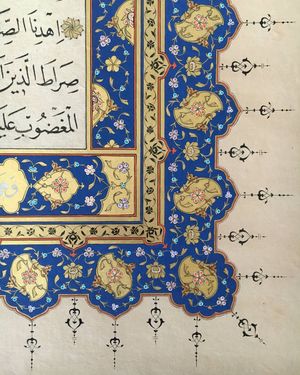 اهْدِنَا الصِّ
صِرَاطَ الَّذِينَ
الْمَغْضُوبِ عَلَ